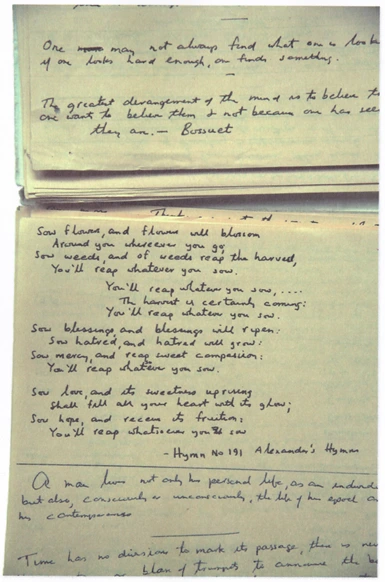 One may not always find what one is
if one looks hard enough, one finds something.
The greatest derangement of the mind is to believe
one want to believe them & not because one has
they are. — Bossuet
Sow flowers, and flowers will blossom
Around you wherever you go,
Sow weeds, and of weeds reap the harvest,
You'll reap whatever you sow.
You'll reap whatever you sow, ....
The harvest is certainly coming:
You'll reap whatever you sow.
Sow blessings, and blessings will ripen:
Sow hatred, and hatred will grow:
Sow mercy, and reap sweet compassion:
You'll reap whatever you sow.
Sow love, and its sweetness uprising
Shall fill all your heart with its glow;
Sow hope, and receive its fruition;
You'll reap whatsoever you sow
- Hymn No 191 Alexander's Hymns
A man lives not only his personal life, as an
but also, consciously or unconsciously, the life of his epoch
his contemporaries
Time has no division to mark its passage, there is
blare of trumpets to announce the